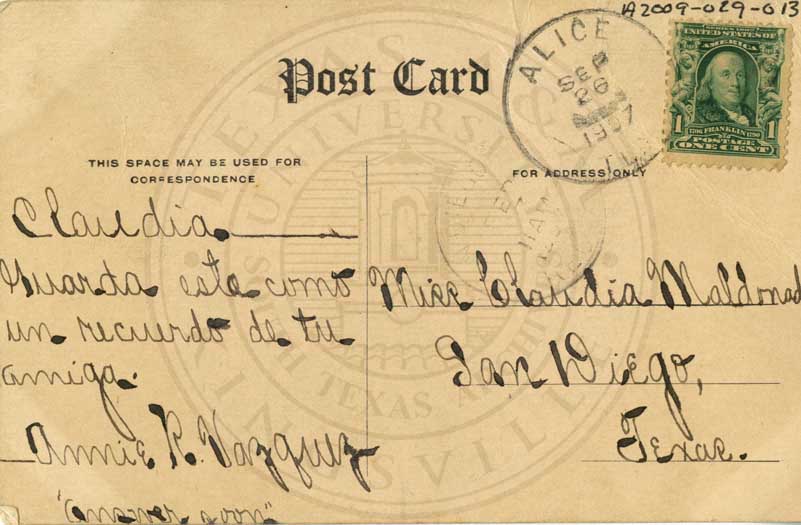 1A2009-029-013
Post Card
ALICE
SEP
26
1907
SERIES 1902
UNITED STATES OF
AMERICA
1706 FRANKLIN 1790
1 POSTAGE 1
ONE CENT
THIS SPACE MAY BE USED FOR
CORRESPONDENCE
FOR ADDRESS ONLY
Claudia.
Guarda esta como
un recuerdo de tu
amiga.
Annie R. Vazquez
"Answer soon"
Miss Claudia Maldonad
San Diego,
Texas.